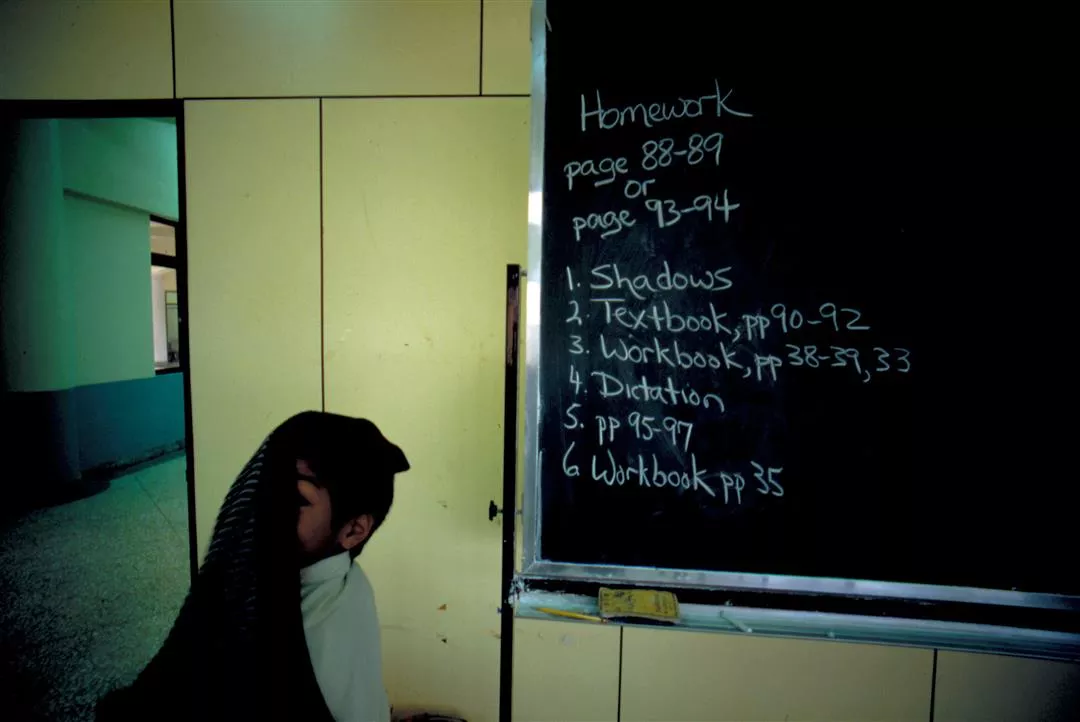 Homework
page 88-89
or
page 93-94
1. Shadows
2. Textbook, pp 90-92
3. Workbook, pp 38-39, 33
4. Dictation
5. pp 95-97
6 Workbook pp 35